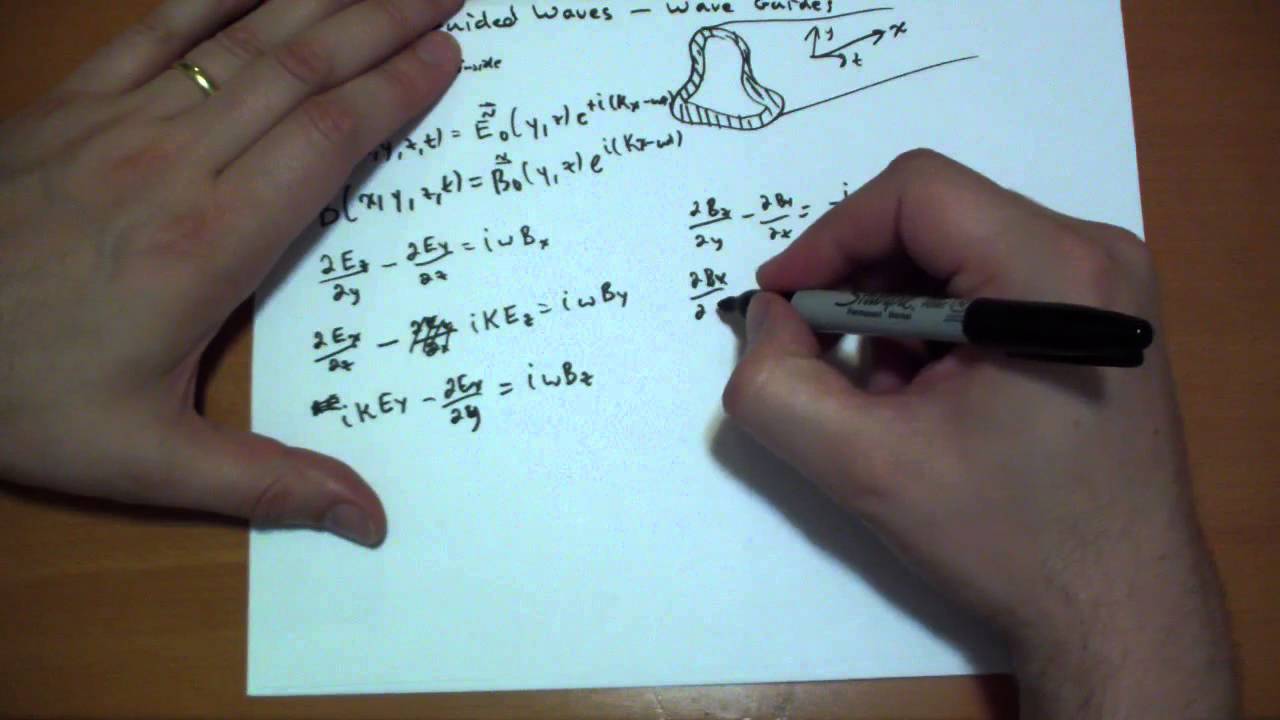 uided Waves – Wave Guides
inside
y x z
,y,z,t) = Ẽ₀(y,z)e^{+i(Kx-ωt)}
B(x,y,z,t) = B̃₀(y,z)e^{i(Kx-ωt)}
∂Ez/∂y − ∂Ey/∂z = iωBx
∂Ex/∂z − iKEz = iωBy
iKEy − ∂Ex/∂y = iωBz
∂Bz/∂y − =
∂Bx/∂
Sharpie
Permanent Marker